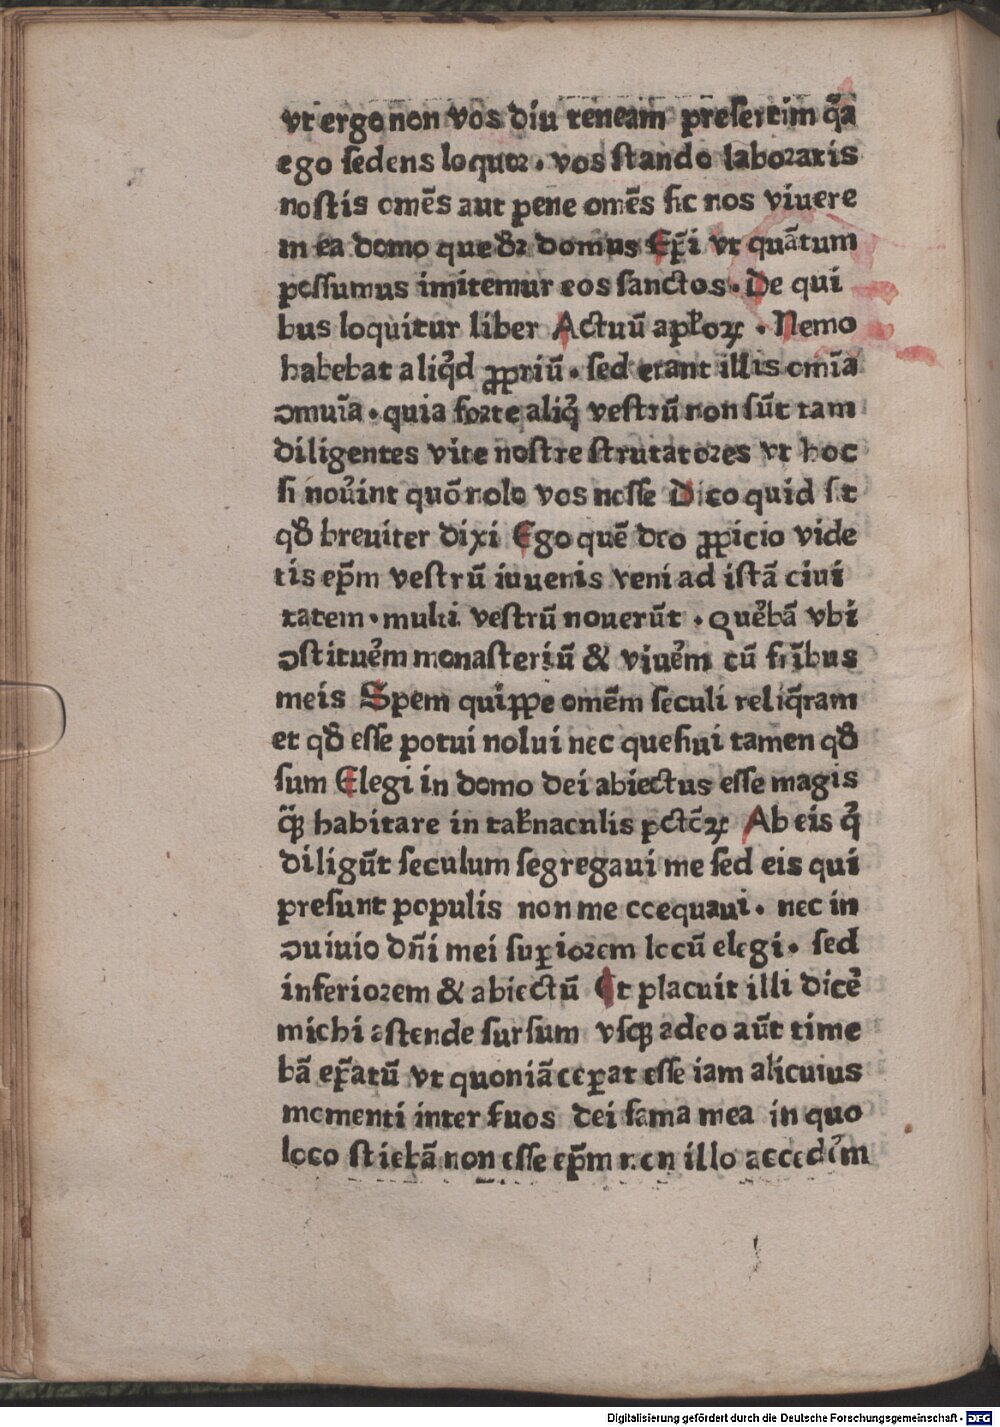 vt ergo non vos diu teneam presertim q̄a
ego sedens loquor . vos stando laboratis
nostis omēs aut pene omēs sic nos viuere
in ea domo que dr̄ domus Ep̄i vt quātum
possumus imitemur eos sanctos . De qui
bus loquitur liber Actuū apl̄oꝝ . Nemo
habebat aliqd̄ ꝓpriū . sed erant illis om̄ia
ꝯmuīa . quia forte aliq̄ vestrū non sūt tam
diligentes vite nostre strutatores vt hoc
si nou̾int quō nolo vos nosse Dico quid sit
qđ breuiter dixi Ego quē deo ꝓpicio vide
tis ep̄m vestrū iuuenis veni ad istā ciui
tatem . multi vestrū nouerūt . Que̾bā vbi
ꝯstitue̾m monasteriū & viue̾m cū fr̄ibus
meis Spem quippe omēm seculi reliq̄ram
et qđ esse potui nolui nec quesiui tamen qđ
sum Elegi in domo dei abiectus esse magis
q̄ꝫ habitare in tab̄naculis pctōꝝ Ab eis q̄
diligūt seculum segregaui me sed eis qui
presunt populis non me coequaui . nec in
ꝯuiuio dn̄i mei suꝑiorem locū elegi . sed
inferiorem & abiectū Et placuit illi dice̾
michi astende sursum vsqꝫ adeo aūt time
bā ep̄atū vt quoniā ceꝑat esse iam alicuius
momenti inter s̄uos dei fama mea in quo
loco stiebā non esse ep̄m non illo accede̾m
Digitalisierung gefördert durch die Deutsche Forschungsgemeinschaft - DFG